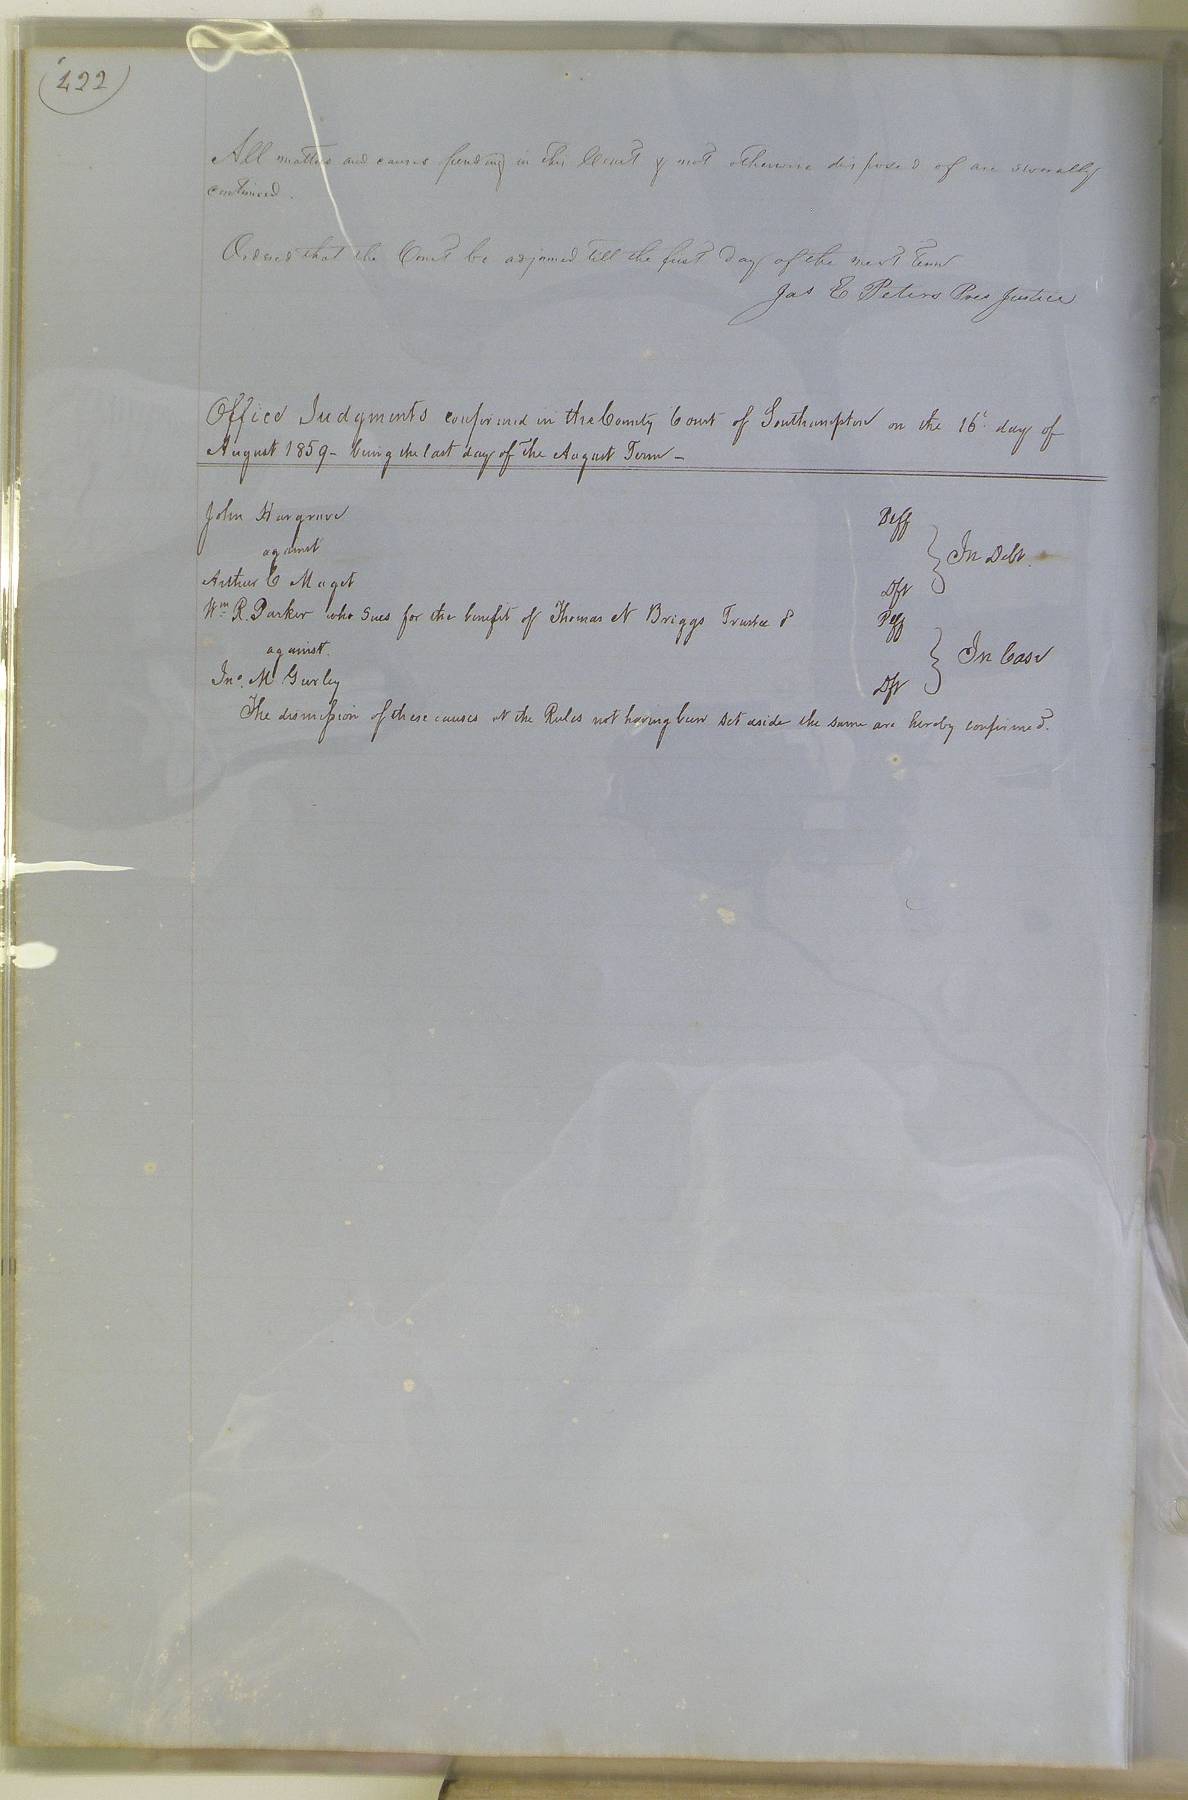 422
All matters and causes pending in this Court & not otherwise disposed of are severally
continued.
Ordered that the Court be adjorned till the first day of the next term
Jas E Peters Pres Justice
Office Judgments confirmed in the County Court of Southampton on the 16th day of
August 1859 - being the last day of the August Term -
John Hargrave Plff
against } In Debt.
Arthur C Maget Dft
Wm. R. Parker who sues for the benefit of Thomas N Briggs Trustee & Plff
against. } In Case
Jno. M Gurley Dft
The dismission of these causes at the Rules not having been set aside the same are hereby confirmed.